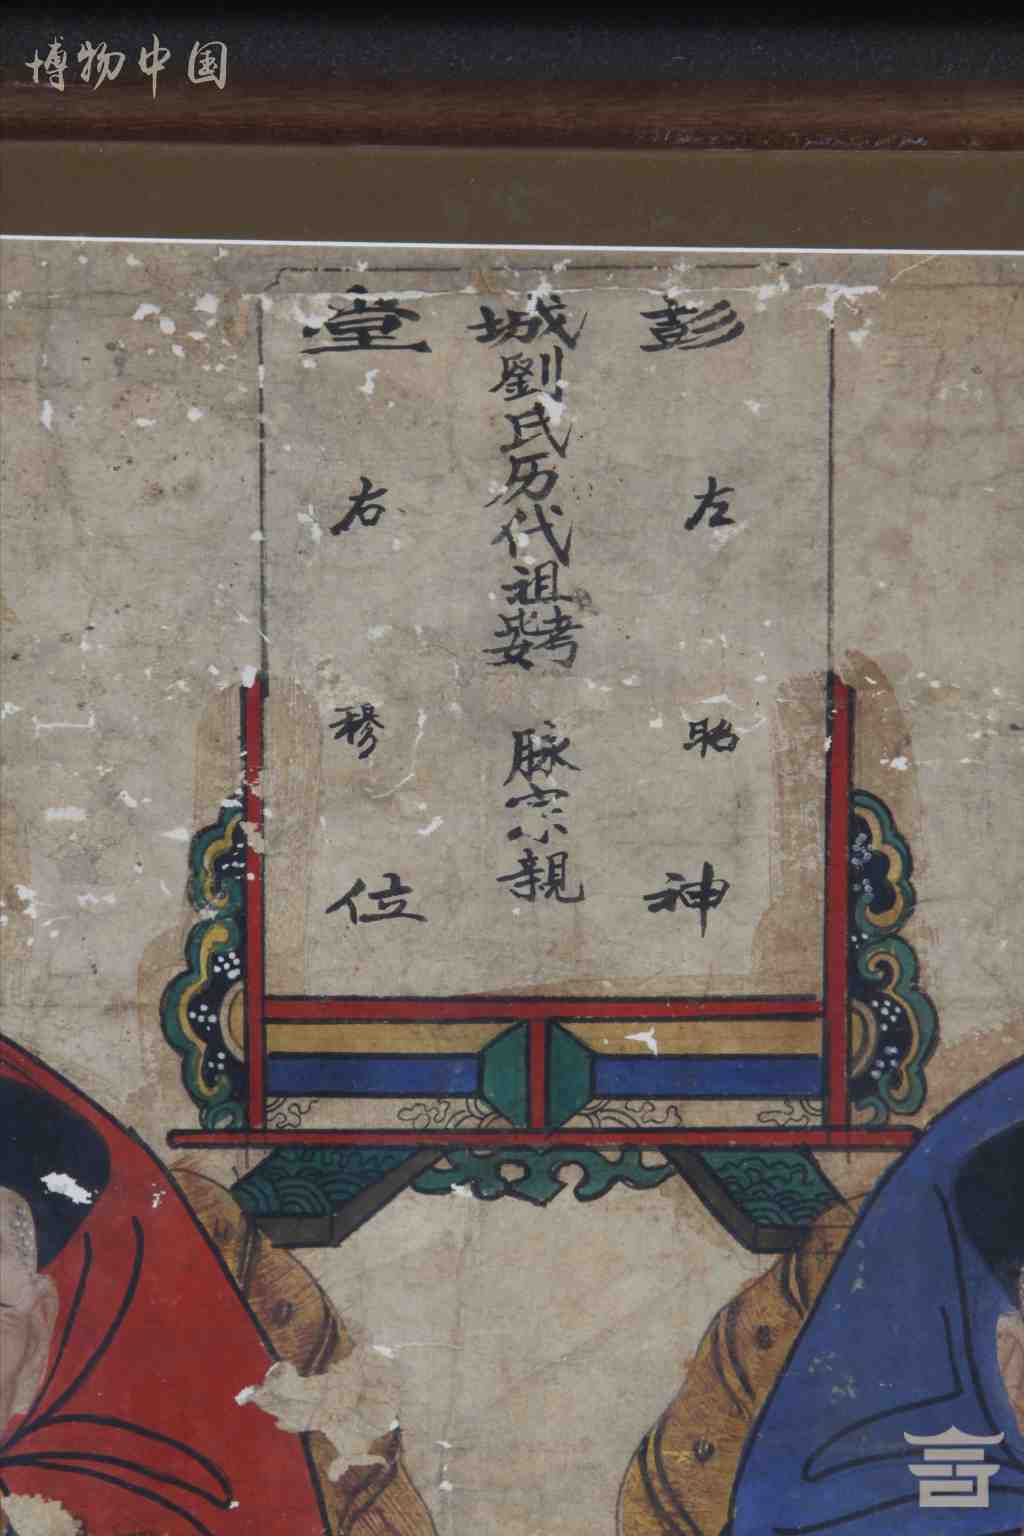 博物中国
彭城堂
劉氏历代祖考妣
脉宗親
左昭神
右穆位